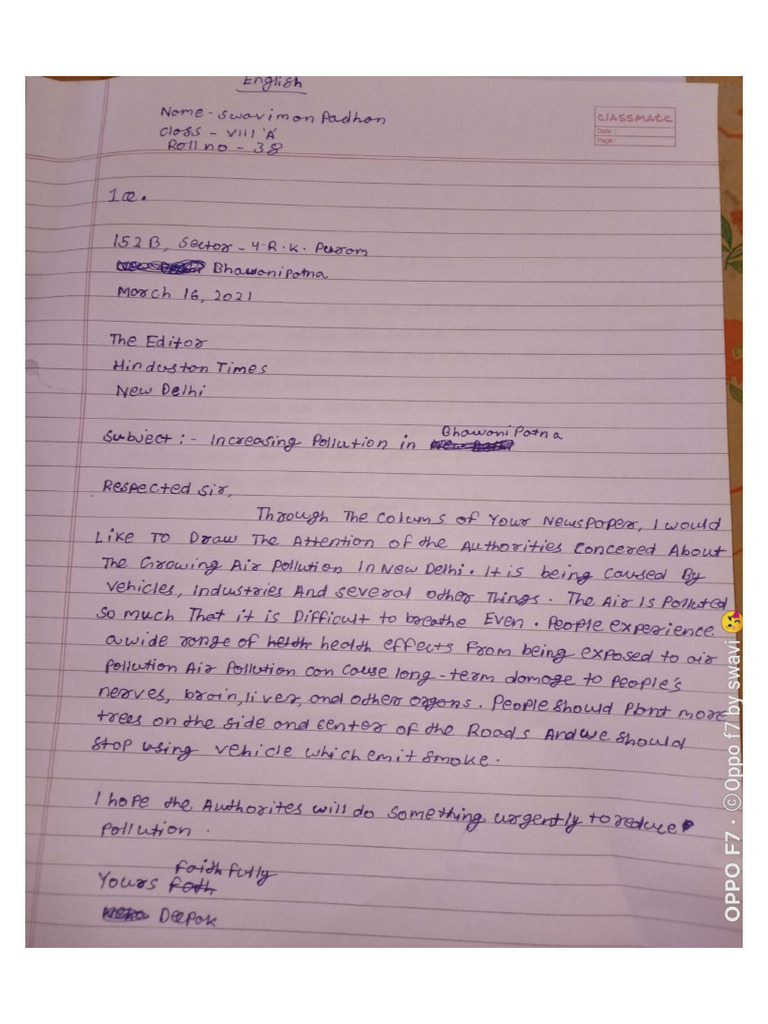 English
Name - Swaviman Padhan
Class - VIII 'A'
Roll no - 38
CLASSMATE
Date :
Page :
1a.
152 B, Sector - 4 R. K. Puram
Bhawanipatna
March 16, 2021
The Editor
Hinduston Times
New Delhi
Subject :- Increasing Pollution in Bhawanipatna
Respected Sir,
Through The Colums of Your Newspaper, I would
Like To Draw The Attention of the Authorities Concered About
The Growing Air Pollution In New Delhi. It is being Caused By
Vehicles, Industries And Several Other Things. The Air Is Polluted
So much That it is Difficult to breathe Even. People experience
a wide range of health effects From being exposed to air
Pollution Air Pollution can Cause long-term damage to People's
nerves, brain, liver, and other organs. People should Plant more
trees on the side and center of the Roads And we should
Stop using vehicle which emit smoke.
I hope the Authorites will do something urgently to reduce
Pollution.
Yours faithfully
Deepak
OPPO F7 · ©Oppo f7 by swavi 😘